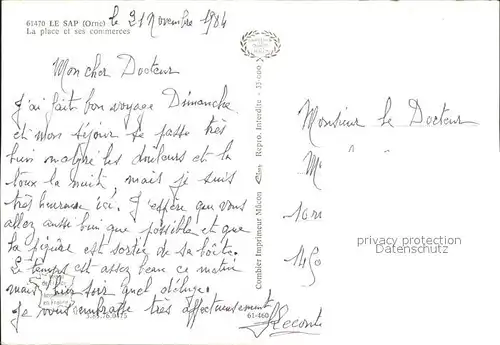 61470 LE SAP (Orne)
La place et ses commerces
le 21 Novembre 1984
Mon cher Docteur
J'ai fait bon voyage Dimanche
et mon séjour se passe très
bien malgré les douleurs et la
toux la nuit, mais je suis
très heureuse ici. J'espère que vous
allez aussi bien que possible et que
la piqûre est sortie de sa boîte.
Le temps est assez beau ce matin
mais hier soir quel déluge.
Je vous embrasse très affectueusement
Leconte
61-460
Combier Imprimeur Mâcon
Repro. Interdite - 33-000
Monsieur le Docteur
M
privacy protection
Datenschutz